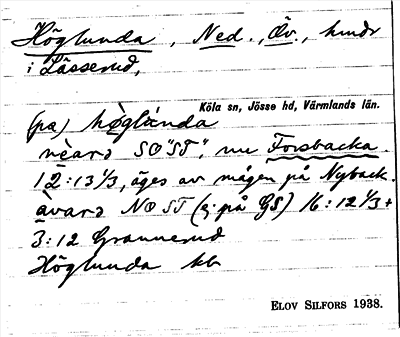 Höglunda, Ned., Öv., hmdr
i Lässerud,
Köla sn, Jösse hd, Värmlands län.
(på) hȯglùnda
nèard SOST", nu Forsbacka.
12:13 1/3, äges av mågen på Nyback.
àvard NOST (ej på GS) 16:12 1/3 +
3:12 Grannerud
Höglunda kb
ELOV SILFORS 1938.